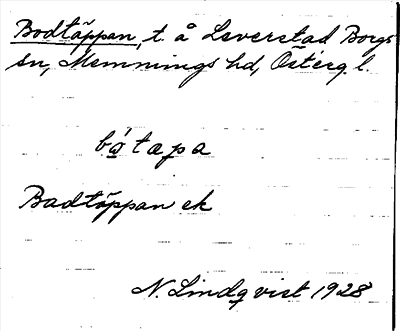 Bodtäppan, t. å Leverstad Borgs
sn, Memmings hd, Österg.l.
bǿtæpa
Badtäppan ek
N. Lindqvist 1928